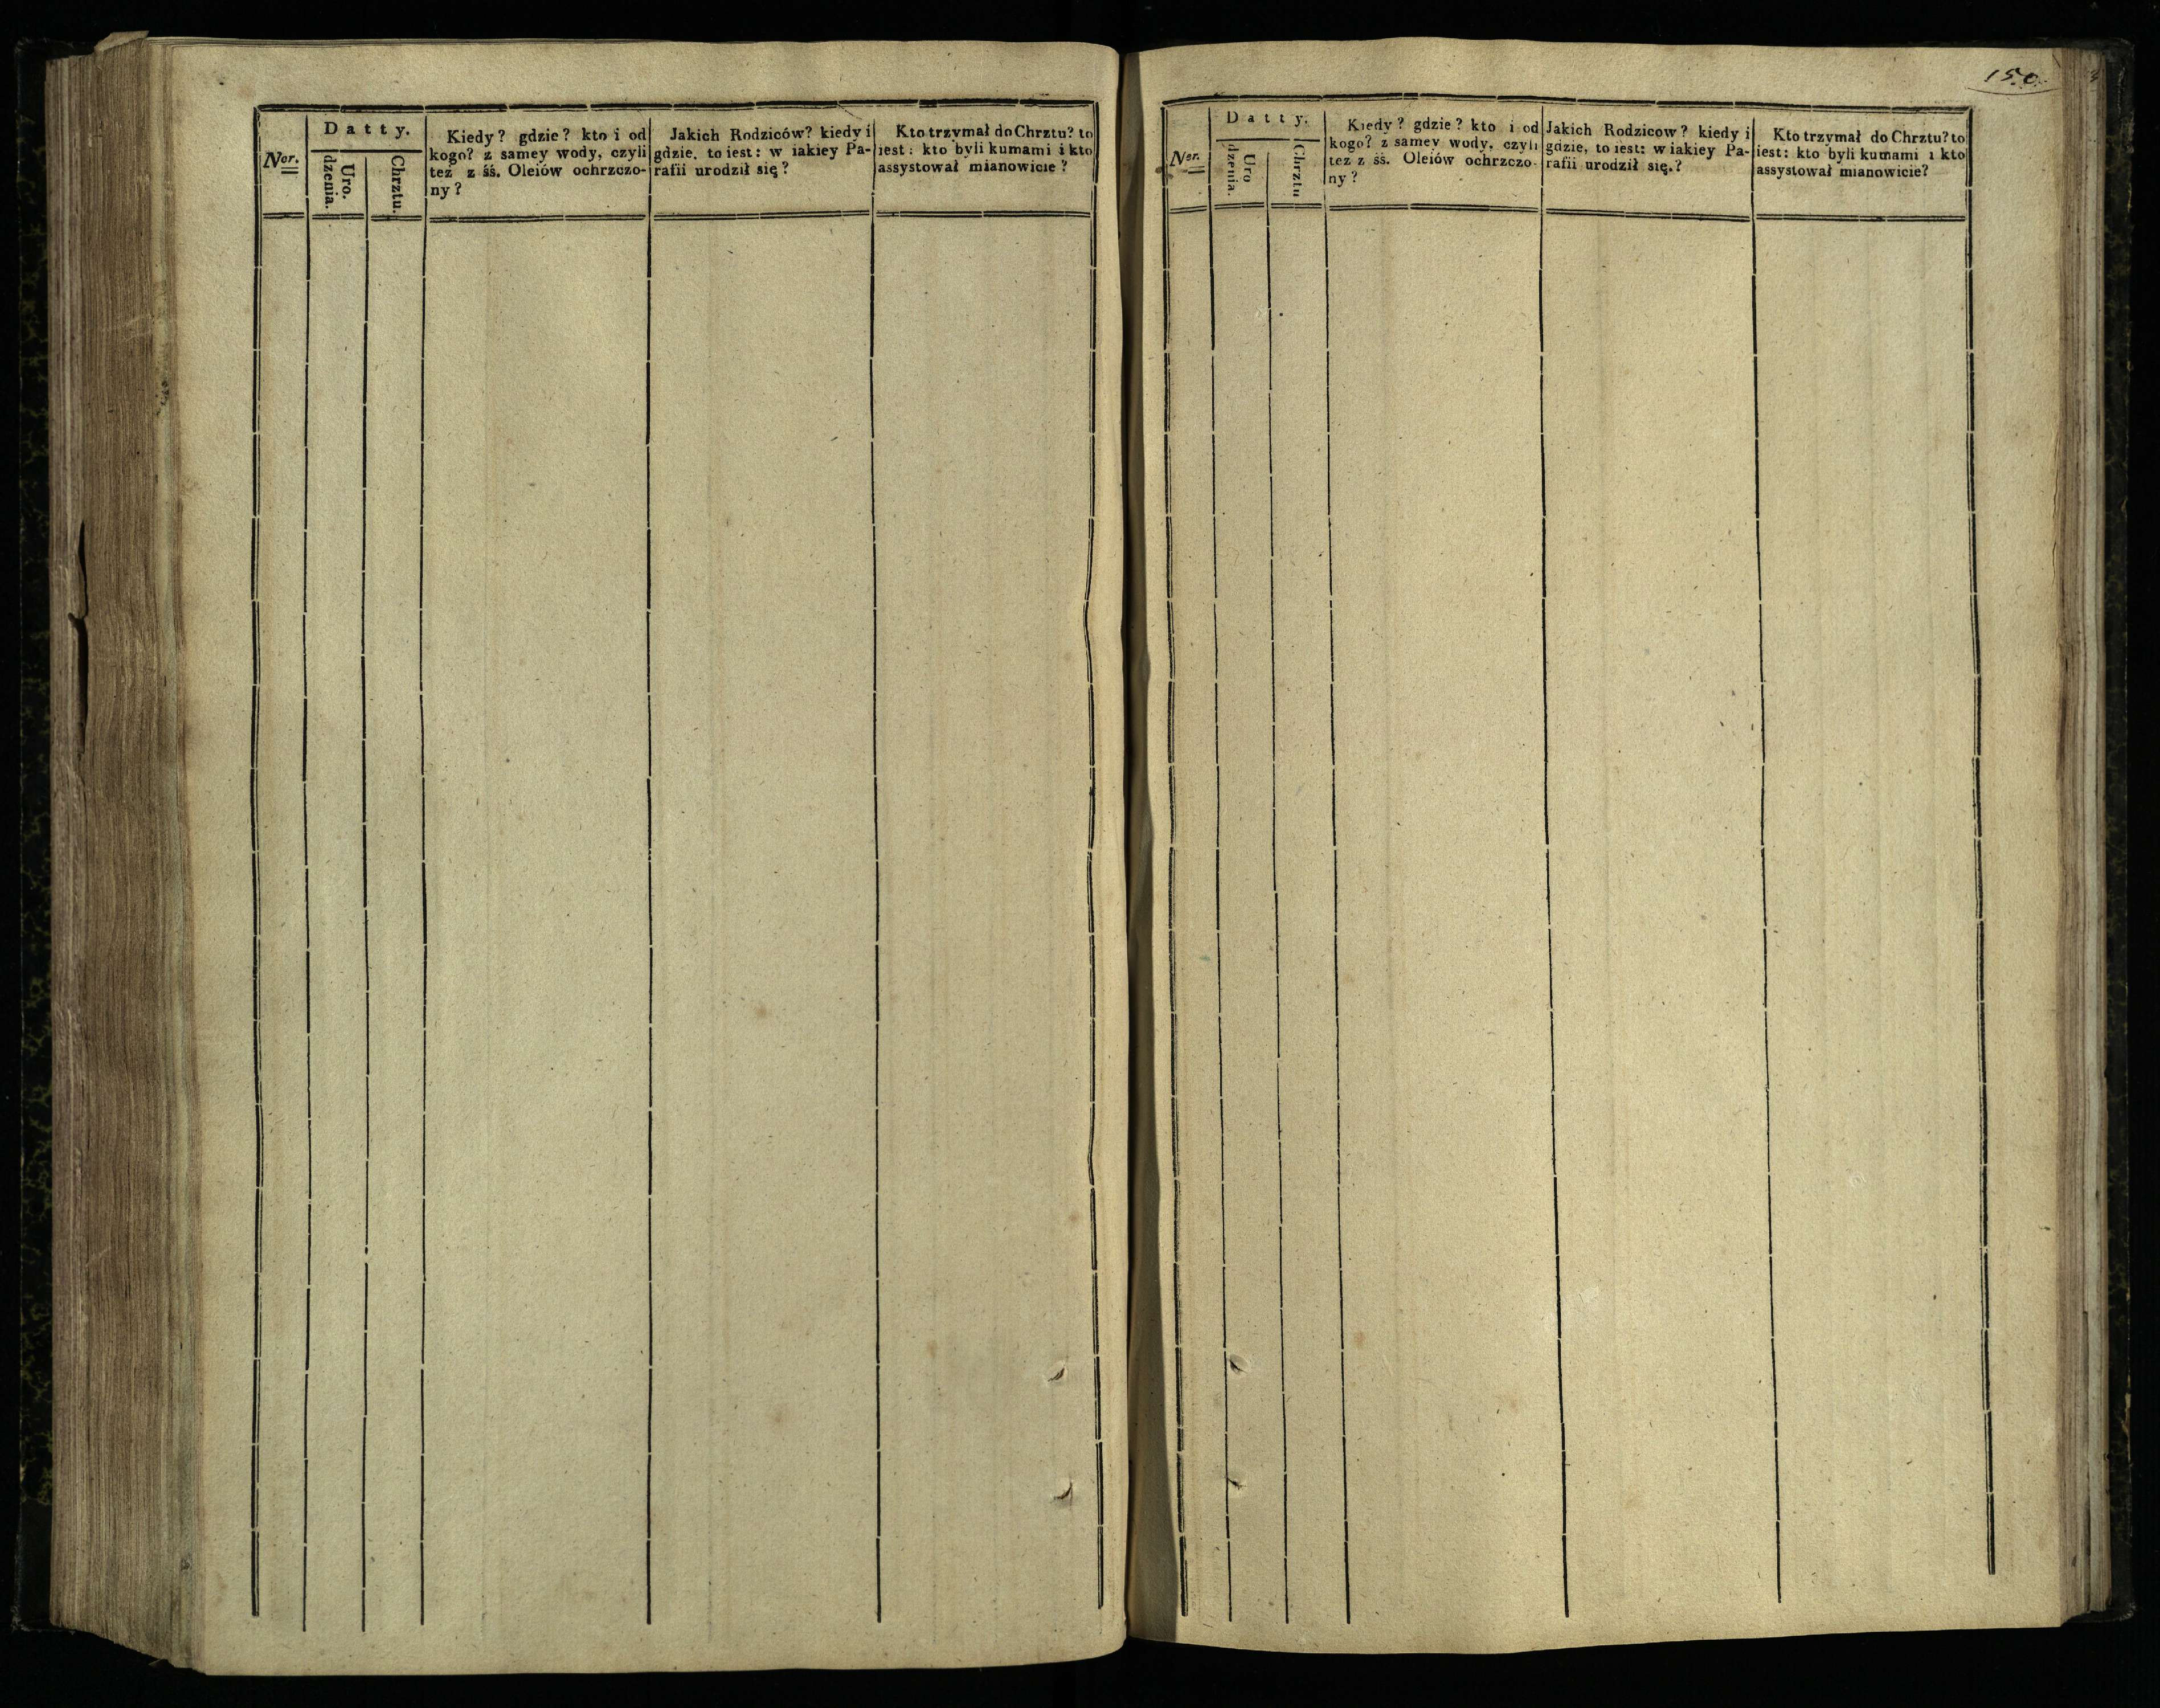 Ner.
Datty.
Uro.
dzenia.
Chrztu.
Kiedy? gdzie? kto i od
kogo? z samey wody, czyli
tez z śś. Oleiów ochrzczo-
ny?
Jakich Rodziców? kiedy i
gdzie, to iest: w iakiey Pa-
rafii urodził się?
Kto trzymał do Chrztu? to
iest: kto byli kumami i kto
assystował mianowicie?
150.
Ner.
Datty.
Uro
dzenia.
Chrztu
Kiedy? gdzie? kto i od
kogo? z samey wody, czyli
tez z śś. Oleiów ochrzczo-
ny?
Jakich Rodzicow? kiedy i
gdzie, to iest: w iakiey Pa-
rafii urodził się.?
Kto trzymał do Chrztu? to
iest: kto byli kumami i kto
assystował mianowicie?